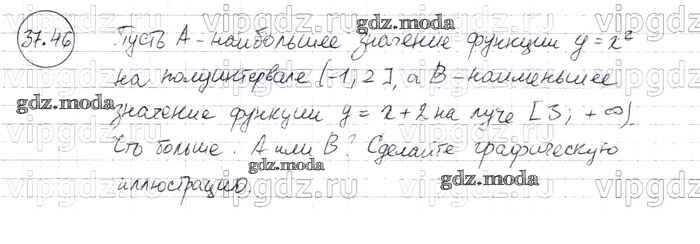 37.46 Пусть A - наибольшее значение функции y = x²
на полуинтервале (-1, 2], а B - наименьшее
значение функции y = x + 2 на луче [3; +∞)
Что больше. A или B? Сделайте графическую
иллюстрацию.
gdz.moda
gdz.moda
gdz.moda
gdz.moda
gdz.moda
gdz.moda
vipgdz.ru
vipgdz.ru
vipgdz.ru
vipgdz.ru